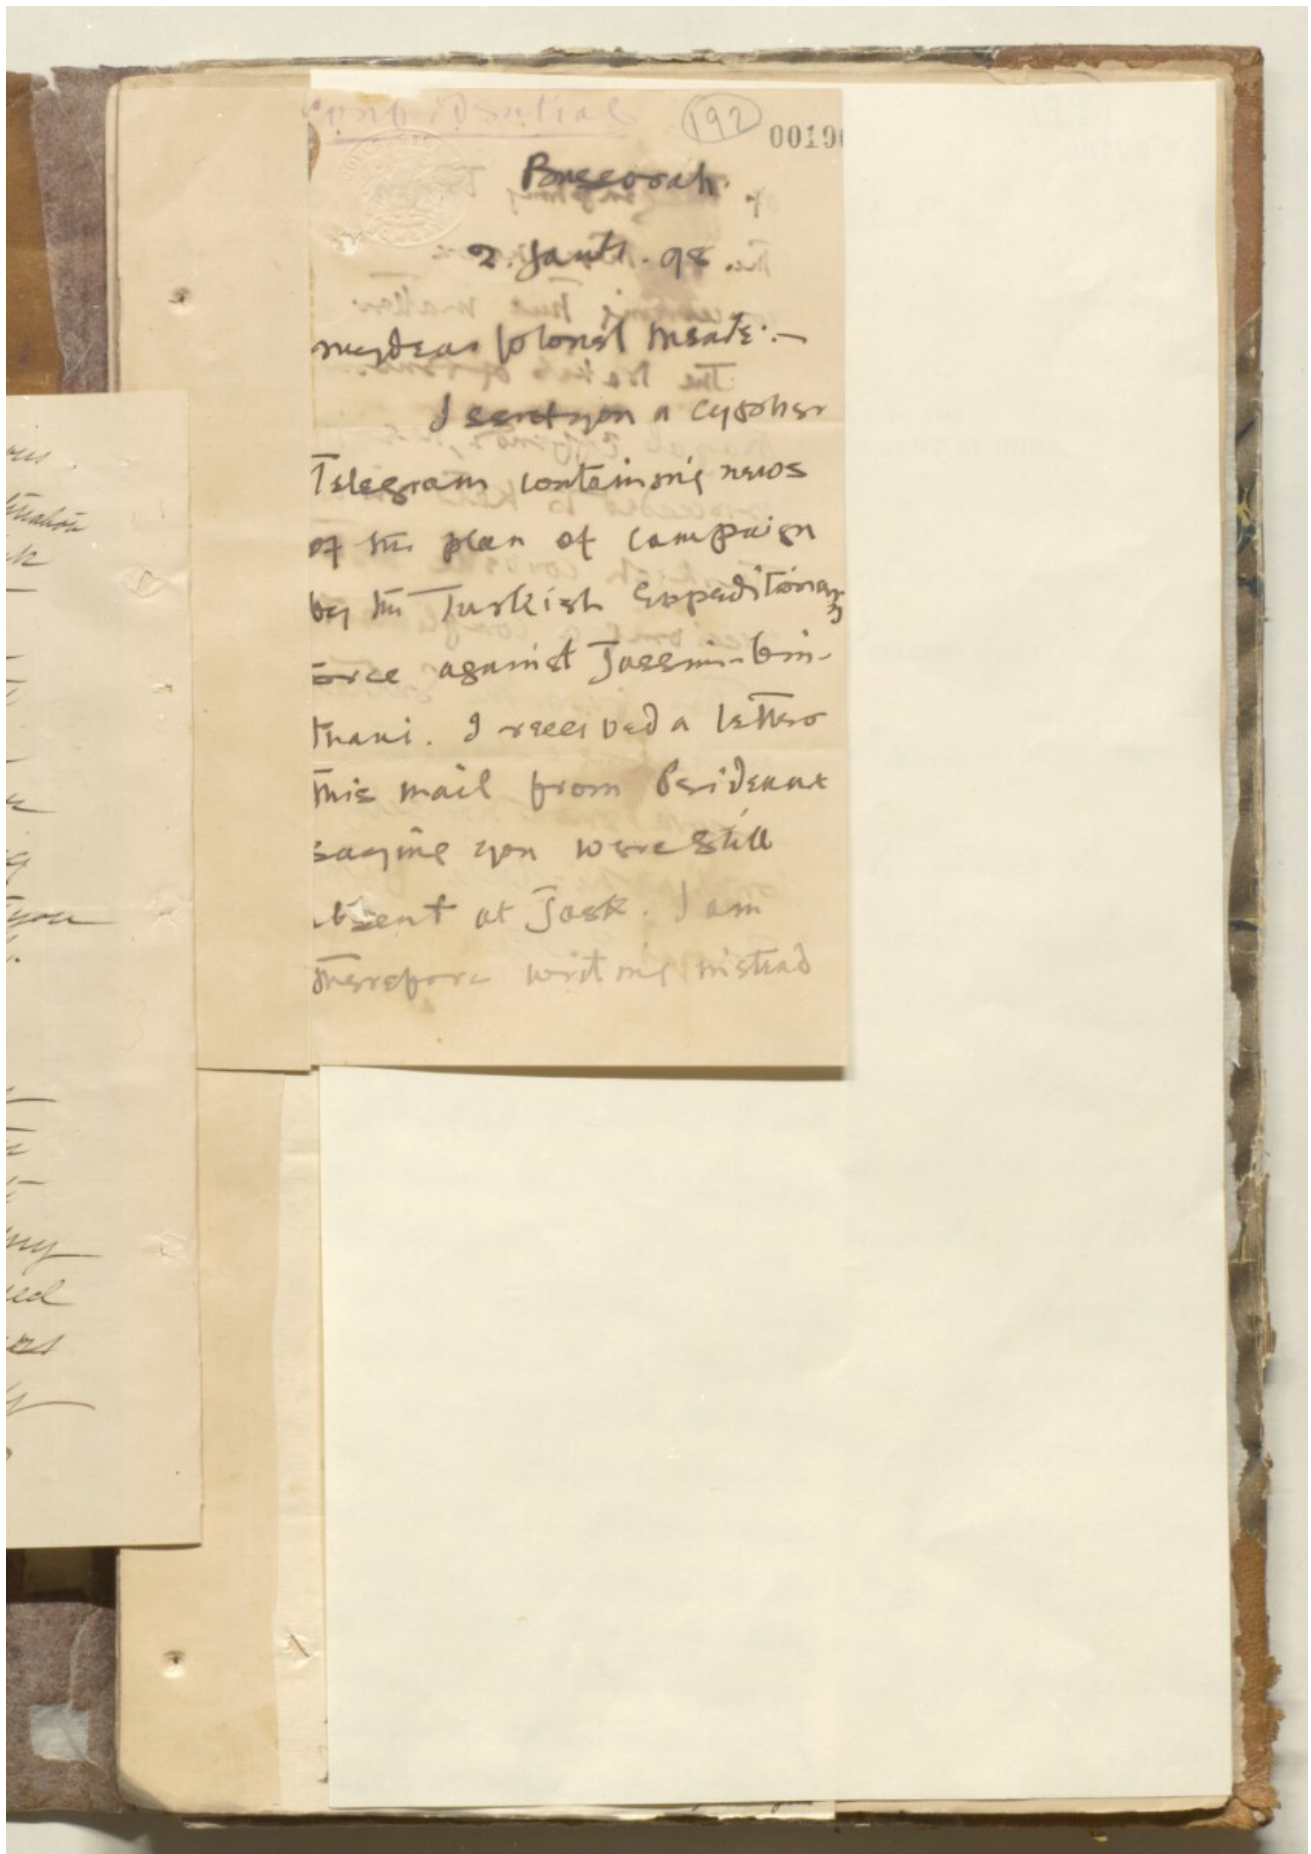 Confidential
192
0019
Busseorah.
2. Janth. 98.
my dear Colonel Meade:—
I sent you a cypher
Telegram containing news
of the plan of campaign
by the Turkish Expeditionary
force against Jassim-bin-
Thani. I received a letter
this mail from Prideaux
saying you were still
absent at Jask. I am
therefore writing instead
you
my